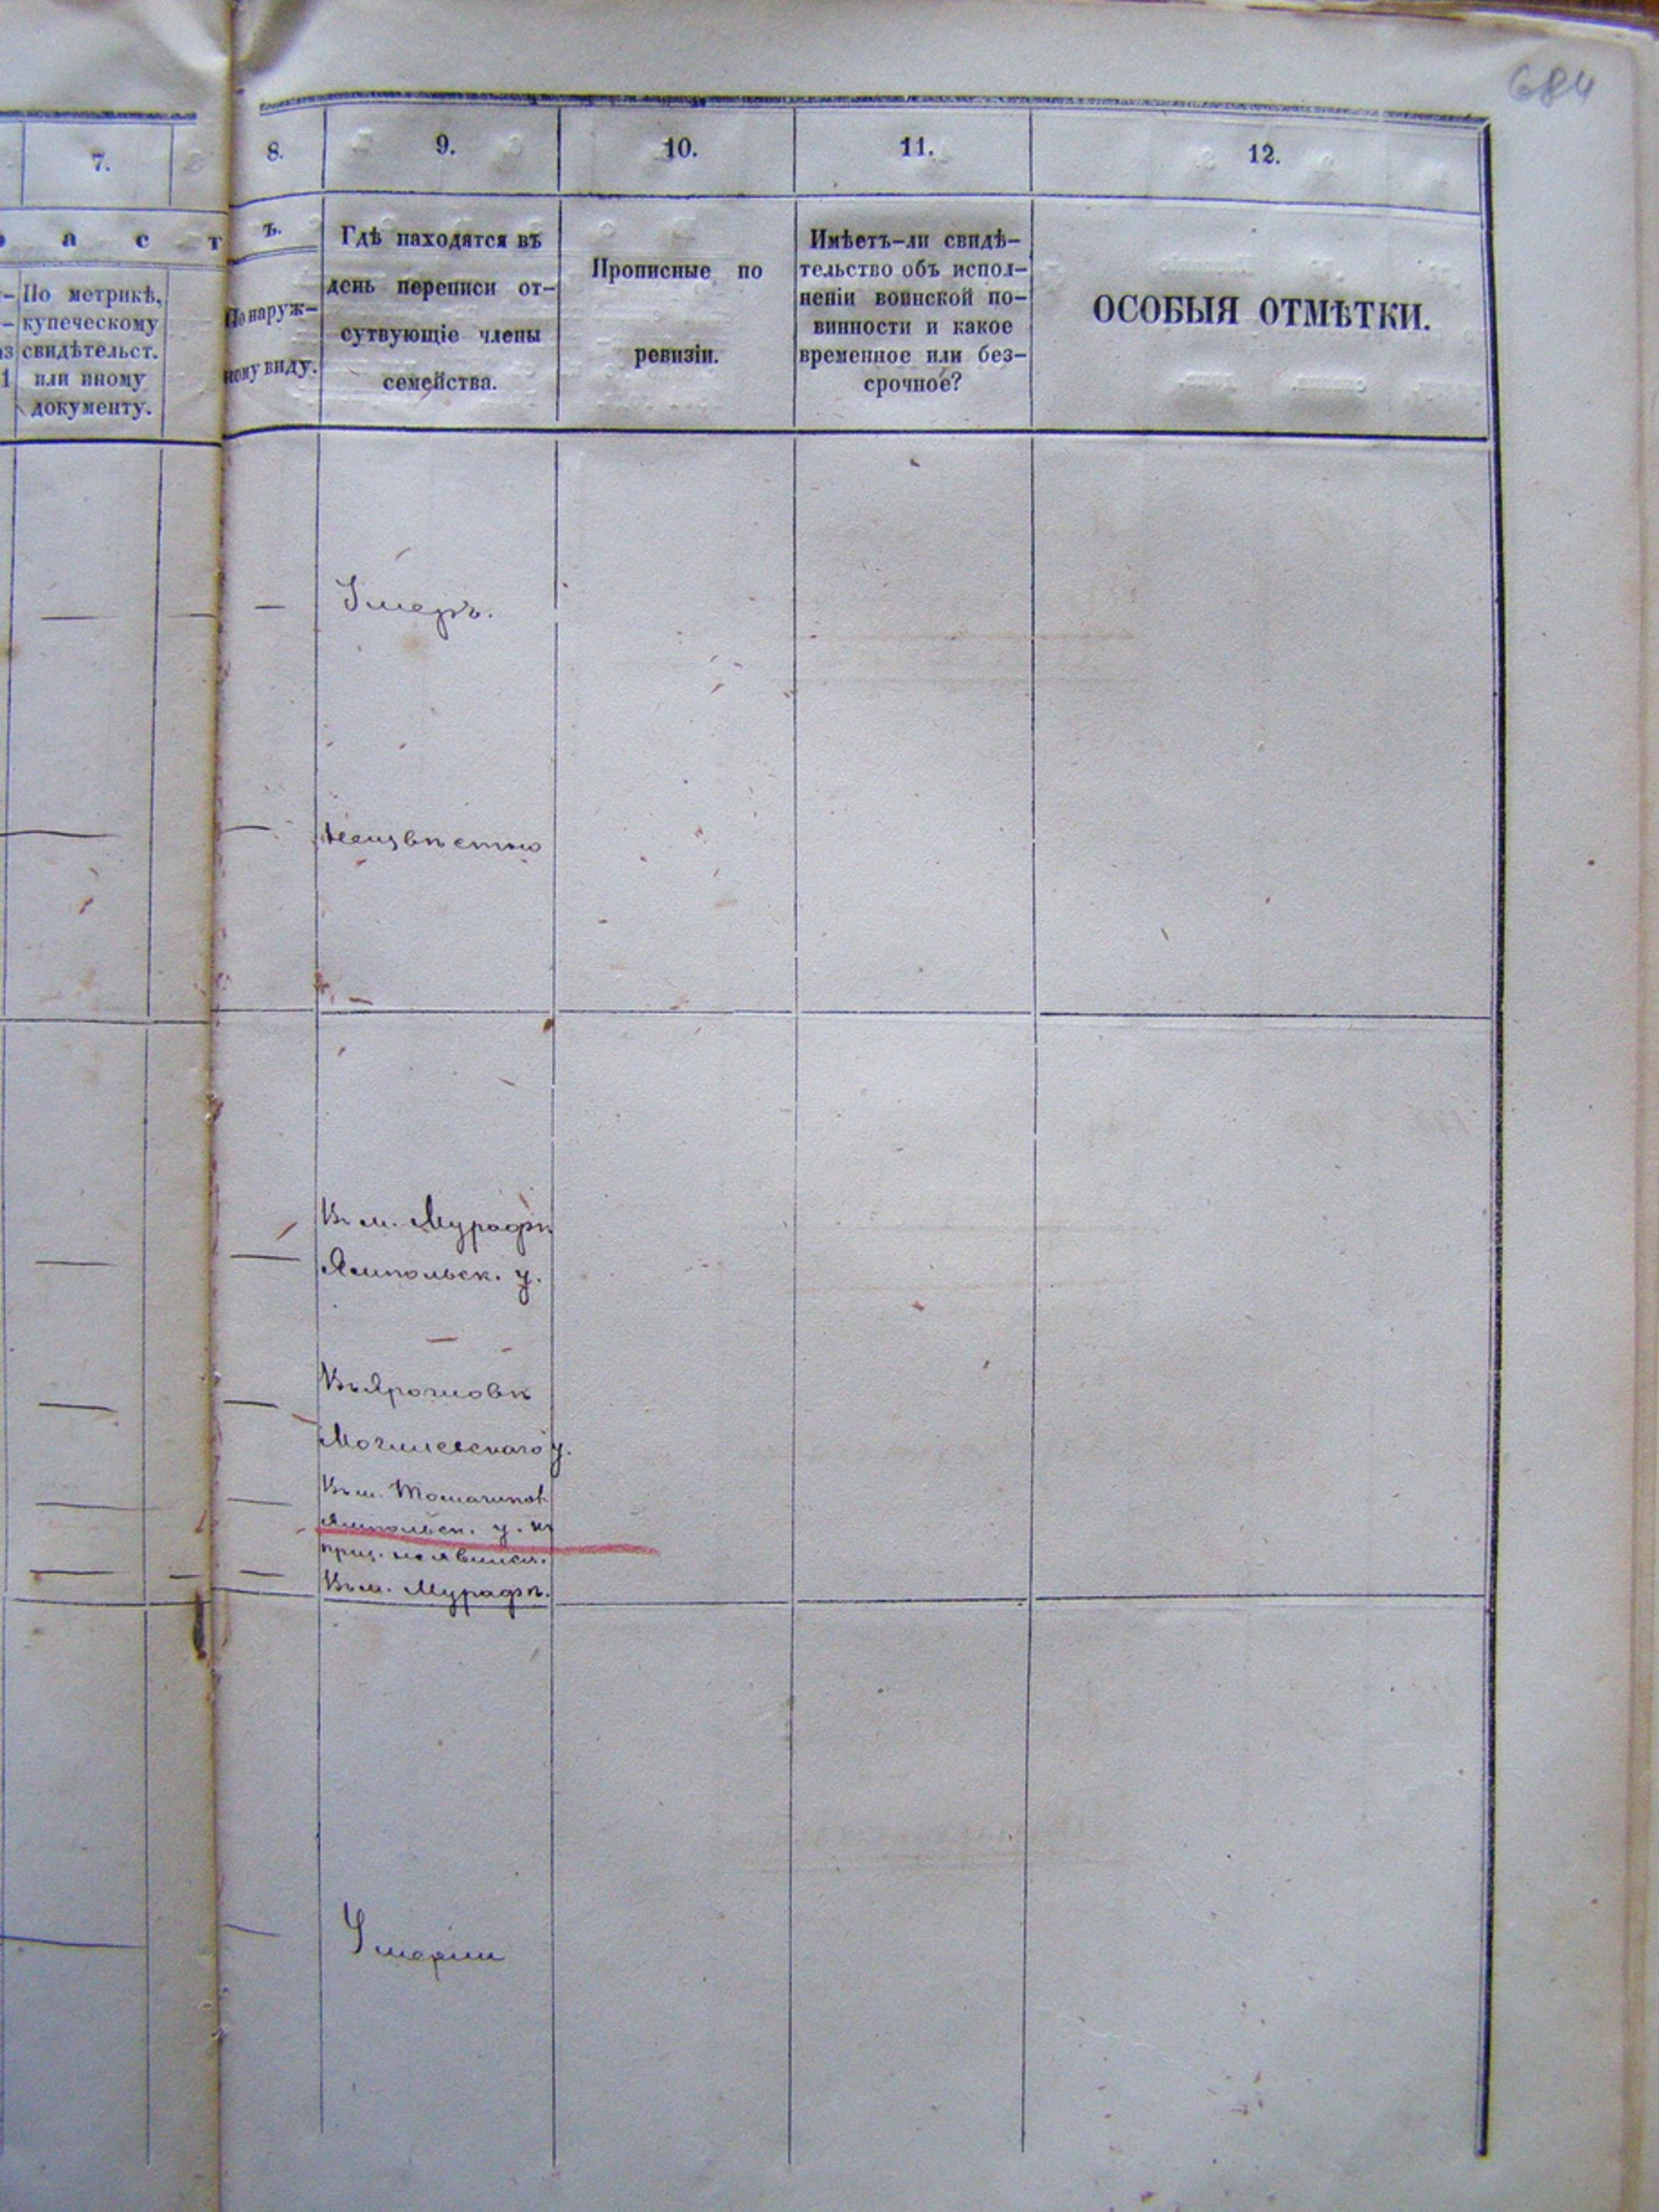 684
7.
8.
9.
10.
11.
12.
а с т
ъ.
По метрикѣ,
купеческому
свидѣтельст.
или иному
документу.
По наруж-
ному виду.
Гдѣ находятся въ
день переписи от-
сутвующіе члены
семейства.
Прописные по
ревизіи.
Имѣетъ-ли свидѣ-
тельство объ испол-
неніи воинской по-
винности и какое
временное или без-
срочное?
ОСОБЫЯ ОТМѢТКИ.
Умеръ.
Неизвѣстно
Въ м. Мурафѣ
Ямпольск. у.
Въ Ярошовкѣ
Могилевскаго у.
Въ м.
Ямпольск. у.
явился.
Въ м. Мурафѣ.
Умерли